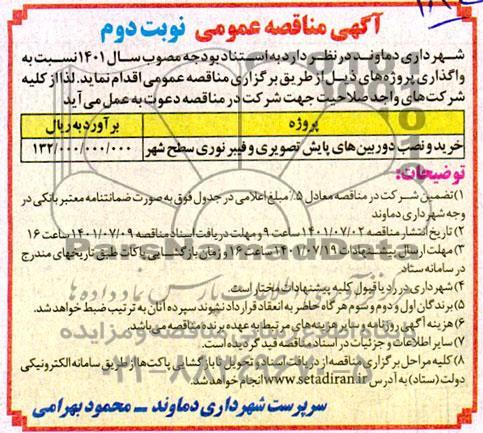 آگهی مناقصه عمومی نوبت دوم
شهرداری دماوند در نظر دارد به استناد بودجه مصوب سال ۱۴۰۱ نسبت به
واگذاری پروژه های ذیل از طریق برگزاری مناقصه عمومی اقدام نماید. لذا از کلیه
شرکت های واجد صلاحیت جهت شرکت در مناقصه دعوت به عمل می آید
پروژه برآورد به ریال
خرید و نصب دوربین های پایش تصویری و فیبر نوری سطح شهر ۱۳۲/۰۰۰/۰۰۰/۰۰۰
توضیحات:
۱) تضمین شرکت در مناقصه معادل ۵٪ مبلغ اعلامی در جدول فوق به صورت ضمانتنامه معتبر بانکی در
وجه شهرداری دماوند
۲) تاریخ انتشار مناقصه ۱۴۰۱/۰۷/۰۲ ساعت ۹ و مهلت دریافت اسناد مناقصه ۱۴۰۱/۰۷/۰۹ ساعت ۱۶
۳) مهلت ارسال پیشنهادات ۱۴۰۱/۰۷/۱۹ ساعت ۱۶ و زمان بازگشایی پاکات طبق تاریخهای مندرج
در سامانه ستاد
۴) شهرداری در رد یا قبول کلیه پیشنهادات مختار است.
۵) برندگان اول و دوم و سوم هرگاه حاضر به انعقاد قرارداد نشوند سپرده آنان به ترتیب ضبط خواهد شد.
۶) هزینه آگهی روزنامه و سایر هزینه های مرتبط به عهده برنده مناقصه می باشد.
۷) سایر اطلاعات و جزئیات در اسناد مناقصه قید گردیده است.
۸) کلیه مراحل برگزاری مناقصه از دریافت اسناد و تحویل تا بازگشایی پاکت ها از طریق سامانه الکترونیکی
دولت (ستاد) به آدرس www.setadiran.ir انجام خواهد شد.
سرپرست شهرداری دماوند - محمود بهرامی
ParsNamadData
۰۲۱-۸۸۳۴۹۶۷۰-۵